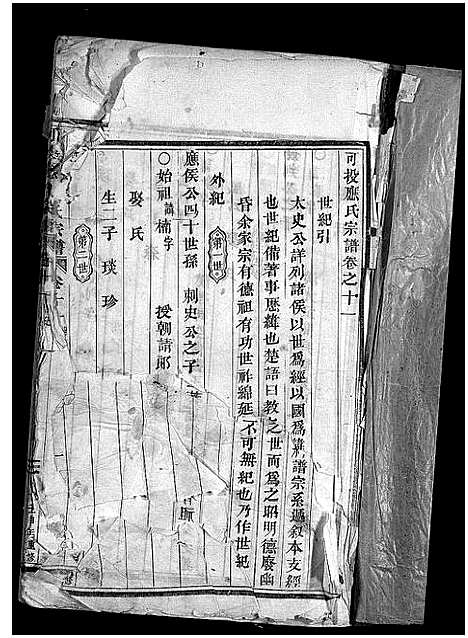 可投應氏宗譜卷之十一
世紀引
太史公詳列諸侯以世爲經以國爲緯譜宗系遞叙本支經
也世紀備著事歷緯也楚語曰教之世而爲之昭明德廢幽
昏余家宗有德祖有功世祚綿延不可無紀也乃作世紀
外紀
第一世
應侯公四十世孫 刺史公之子
〇始祖諱楠字 授朝請郎
娶 氏
生二子 琰 珍
第二世